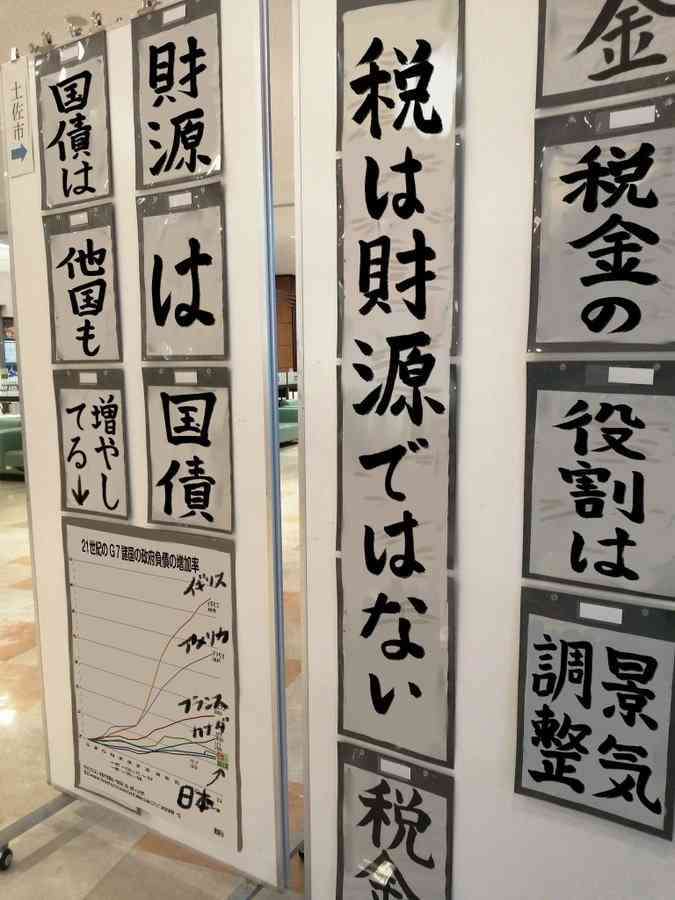 土佐市
財源
は
国債
国債は
他国も
増やし
てる↓
21世紀のG7諸国の政府負債の増加率
イギリス
アメリカ
フランス
カナダ
日本
税は財源ではない
税金
金
税金の
役割は
景気
調整